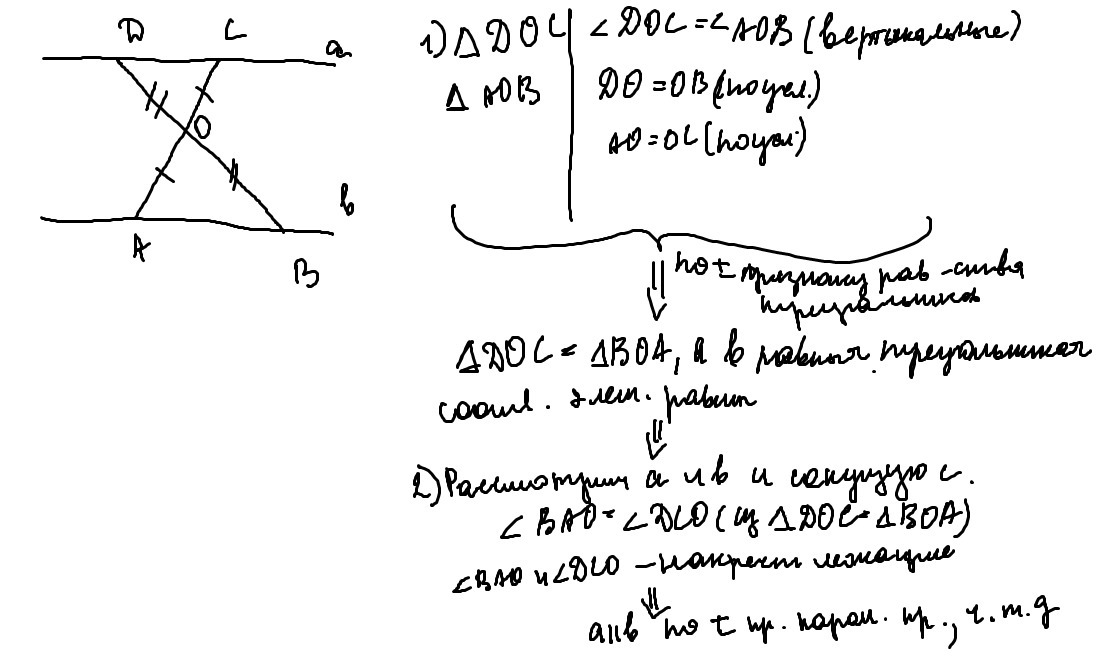 D C a
O
A B b
1) Δ DOC | ∠DOC = ∠AOB (вертикальные)
Δ AOB | DO = OB (по усл.)
AO = OC (по усл.)
⇓ по I признаку рав-ства
треугольников
ΔDOC = ΔBOA, а в равных треугольниках
соотв. элем. равны
⇓
2) Рассмотрим a и b и секущую c.
∠BAO = ∠DCO (из ΔDOC = ΔBOA)
∠BAO и ∠DCO – накрест лежащие
⇓
a||b по I пр. парал. пр., ч.т.д